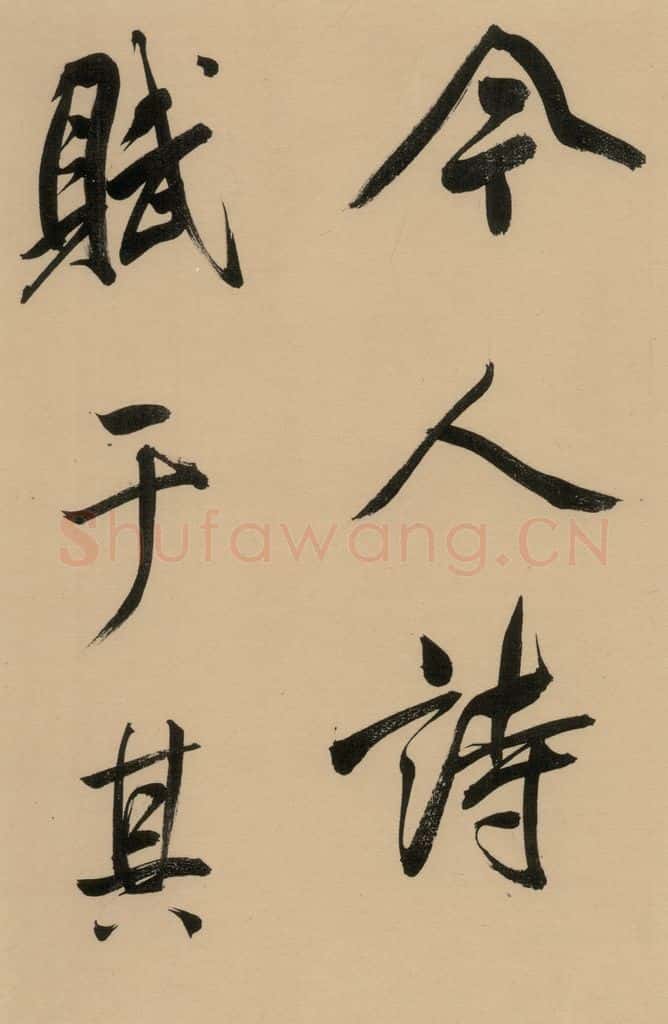 今人詩
賦于其
Shufawang.CN